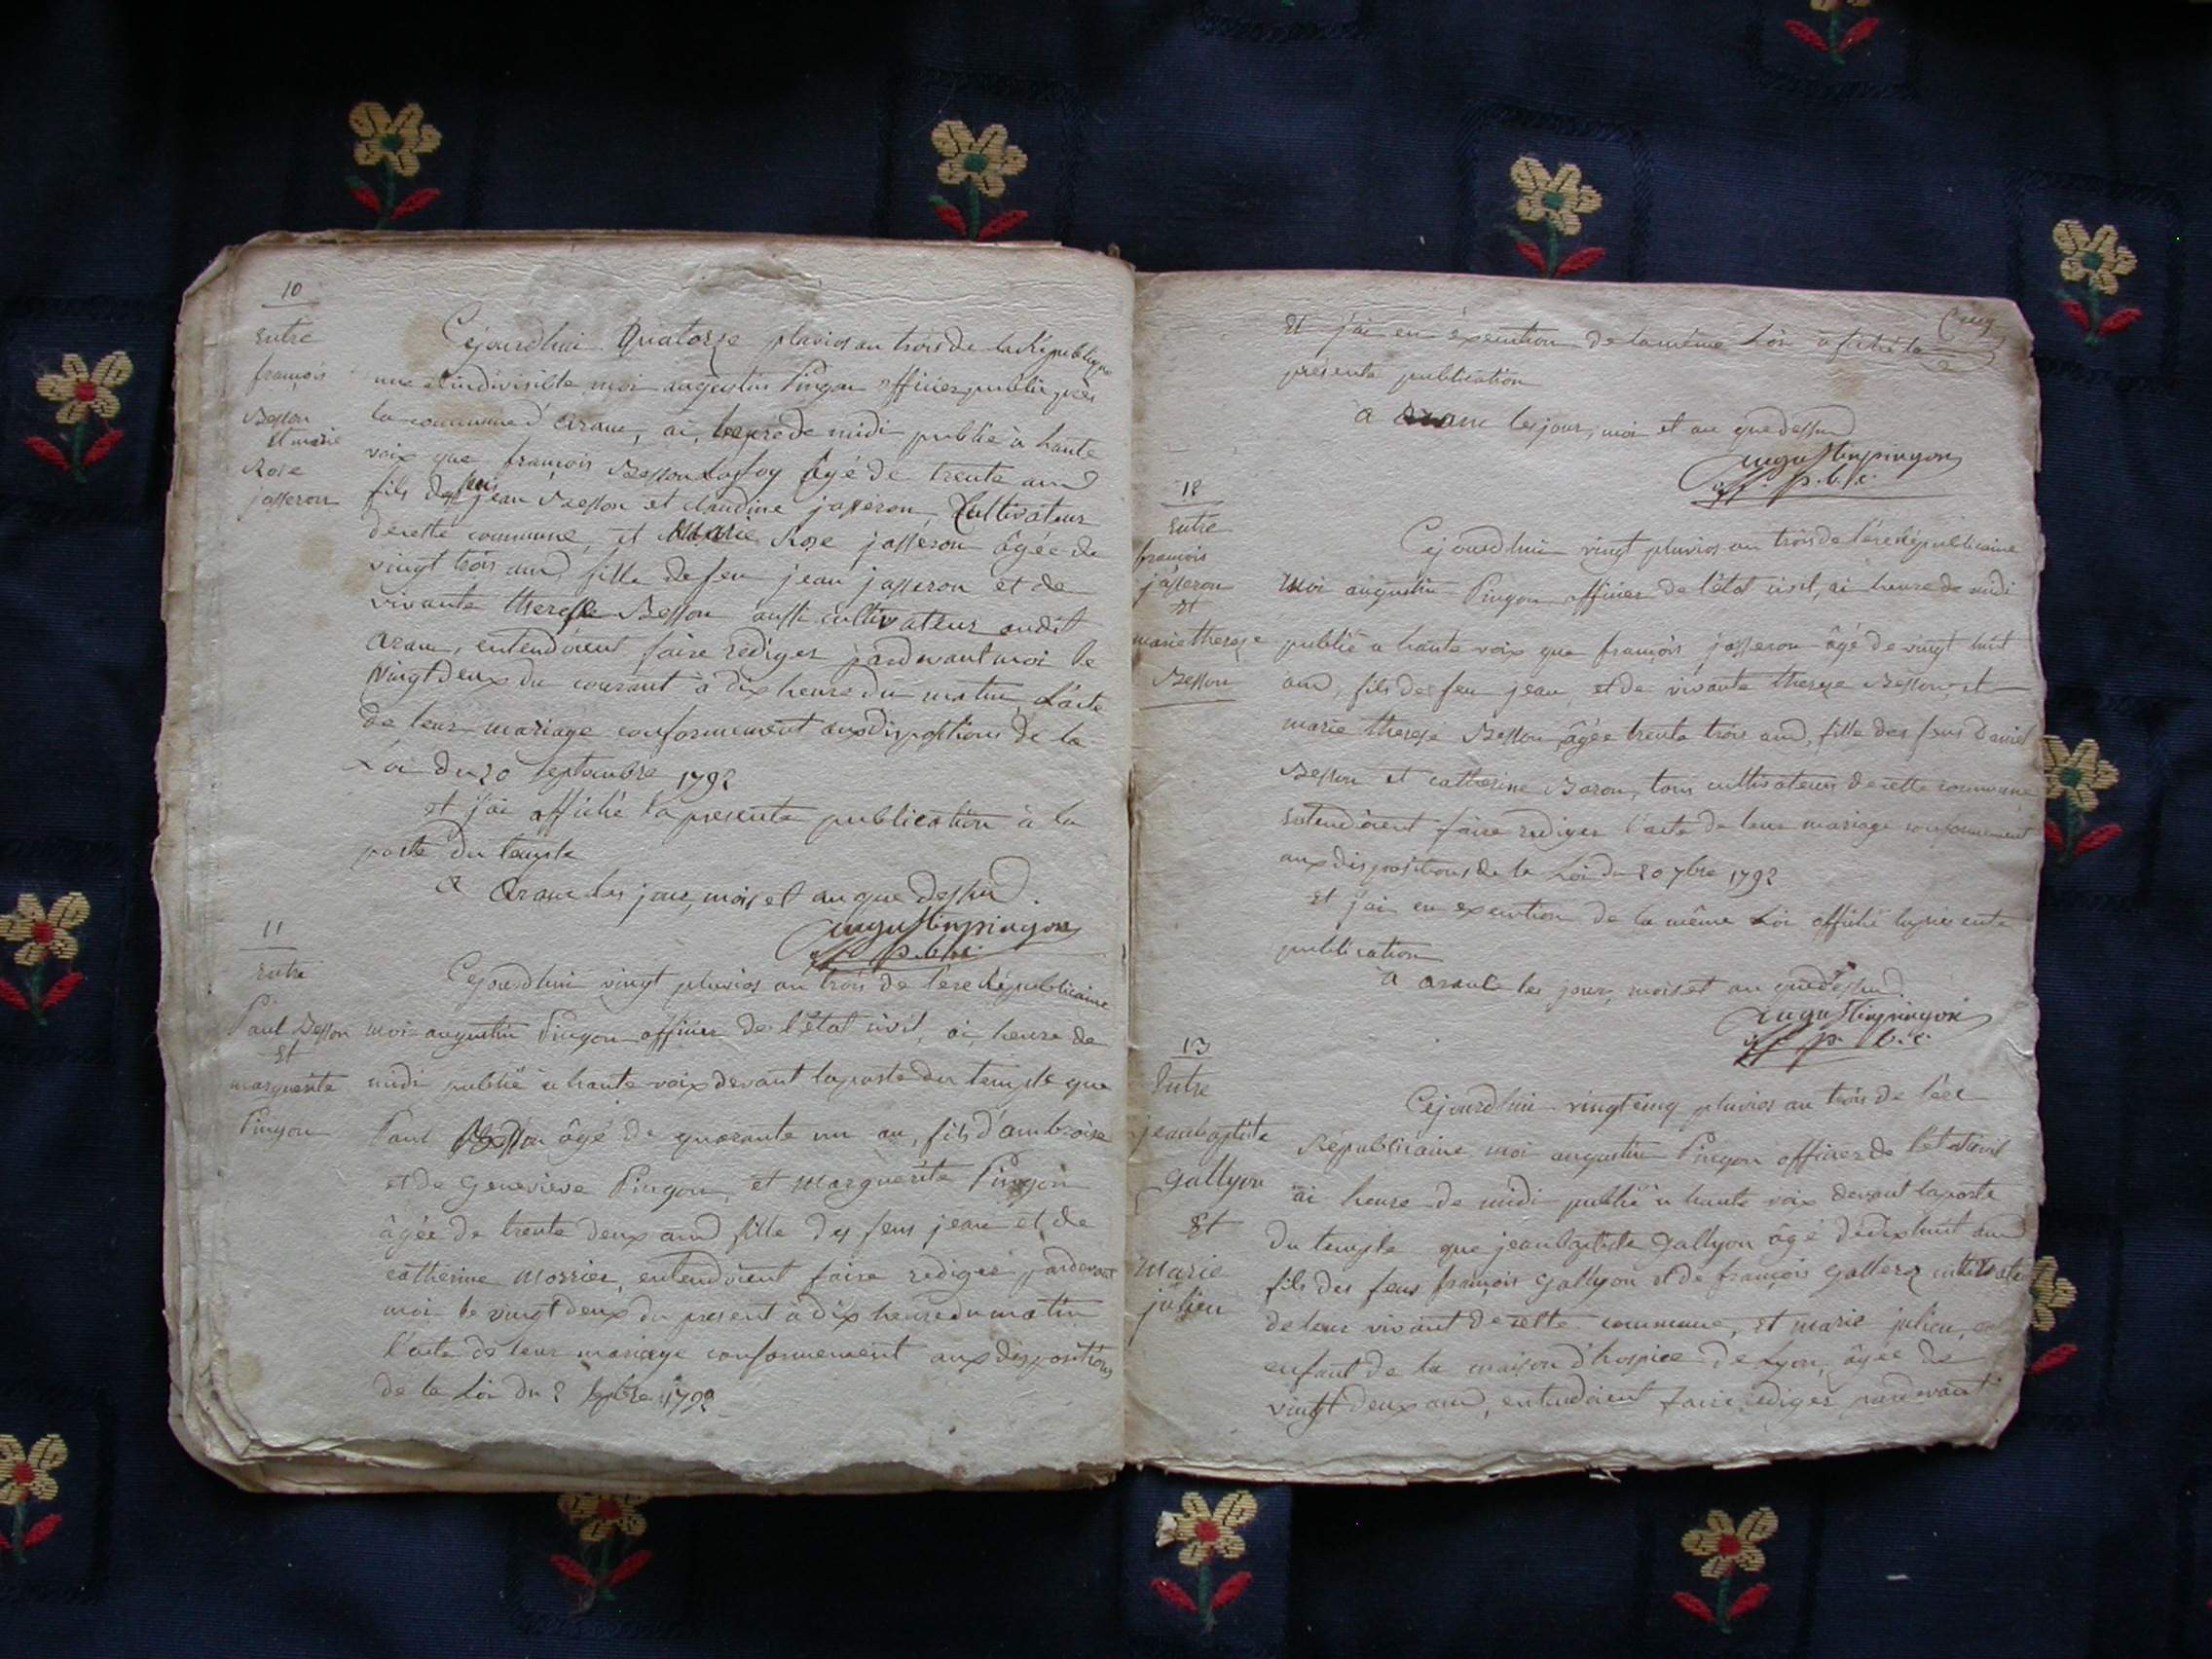 10
Entre
françois
Besson
et marie
Rose
josseron
Cejourdhui Quatorze pluvios an trois de la Republique
une et indivisible, moi augustin Pingon officier public près
la commune d'aranc, ai, heure de midi publié à haute
voix que françois Besson âgé de trente ans
fils des feus jean Besson et claudine josseron, Cultivateur
de cette commune, et Marie Rose josseron âgée de
vingt trois ans, fille de feu jean josseron et de
vivante therese Besson aussi cultivateur audit
aranc, entendoient faire rédiger pardevant moi le
vingt deux du courant à dix heure du matin L'acte
de leur mariage conformement aux dispositions de la
Loi du 20 septembre 1792
et j'ai affiché la presente publication à la
porte du temple
a aranc les jour, mois et an que dessus.
augustin pingon
off. p.blic
11
entre
Paul Besson
Et
marguerite
Pingon
Cejourdhui vingt pluvios an trois de l'ére Républicaine
moi augustin Pingon officier de l'état civil, ai, heure de
midi publié a haute voix devant la porte du temple que
Paul Besson âgé de quarante un an, fils d'ambroise
et de Genevieve Pingon, et Marguerite Pingon
âgée de trente deux ans fille des feus jean et de
catherine Morrier, entendoient faire rediger pardevant
moi le vingt deux du present à dix heure du matin
l'acte de leur mariage conformement aux dispositions
de la Loi du 2 septbre 1792
Cinq
Et j'ai en éxecution de la même Loi affiché la
présente publication
a aranc les jour, moi et an que dessus
augustin pingon
off. p.b.l.c.
12
Entre
françois
josseron
Et
marie therese
Besson
Cejourdhui vingt pluvios an trois de l'ére Républicaine
Moi augustin Pingon officier de l'état civil, ai heure de midi
publié a haute voix que françois josseron âgé de vingt huit
ans, fils de feu jean, et de vivante therese Besson, et
marie therese Besson âgée trente trois ans, fille des feus Daniel
Besson et catherine Baron, tous cultivateurs de cette commune
Entendoient faire rediger l'acte de leur mariage conformement
aux dispositions de la Loi du 20 7bre 1792
Et j'ai en execution de la même Loi affiché la presente
publication
a aranc les jour, mois et an que dessus.
augustin pingon
off. p. b.l.c.
13
Entre
jeanbaptiste
Gallyon
Et
Marie
julien
Cejourdhui vingt cinq pluvios an trois de l'ére
Républicaine moi augustin Pingon officier de l'etat civil
ai heure de midi publié a haute voix devant la porte
du temple que jeanbaptiste Gallyon âgé de dix huit ans
fils des feus françois Gallyon et de françois
de leur vivant de cette commune, et marie julien,
enfant de la maison d'hospice de Lyon, âgée de
vingt deux ans, entendoient faire rediger pardevant